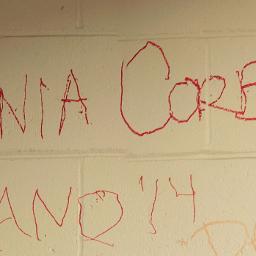 NIA CORB
AND '14